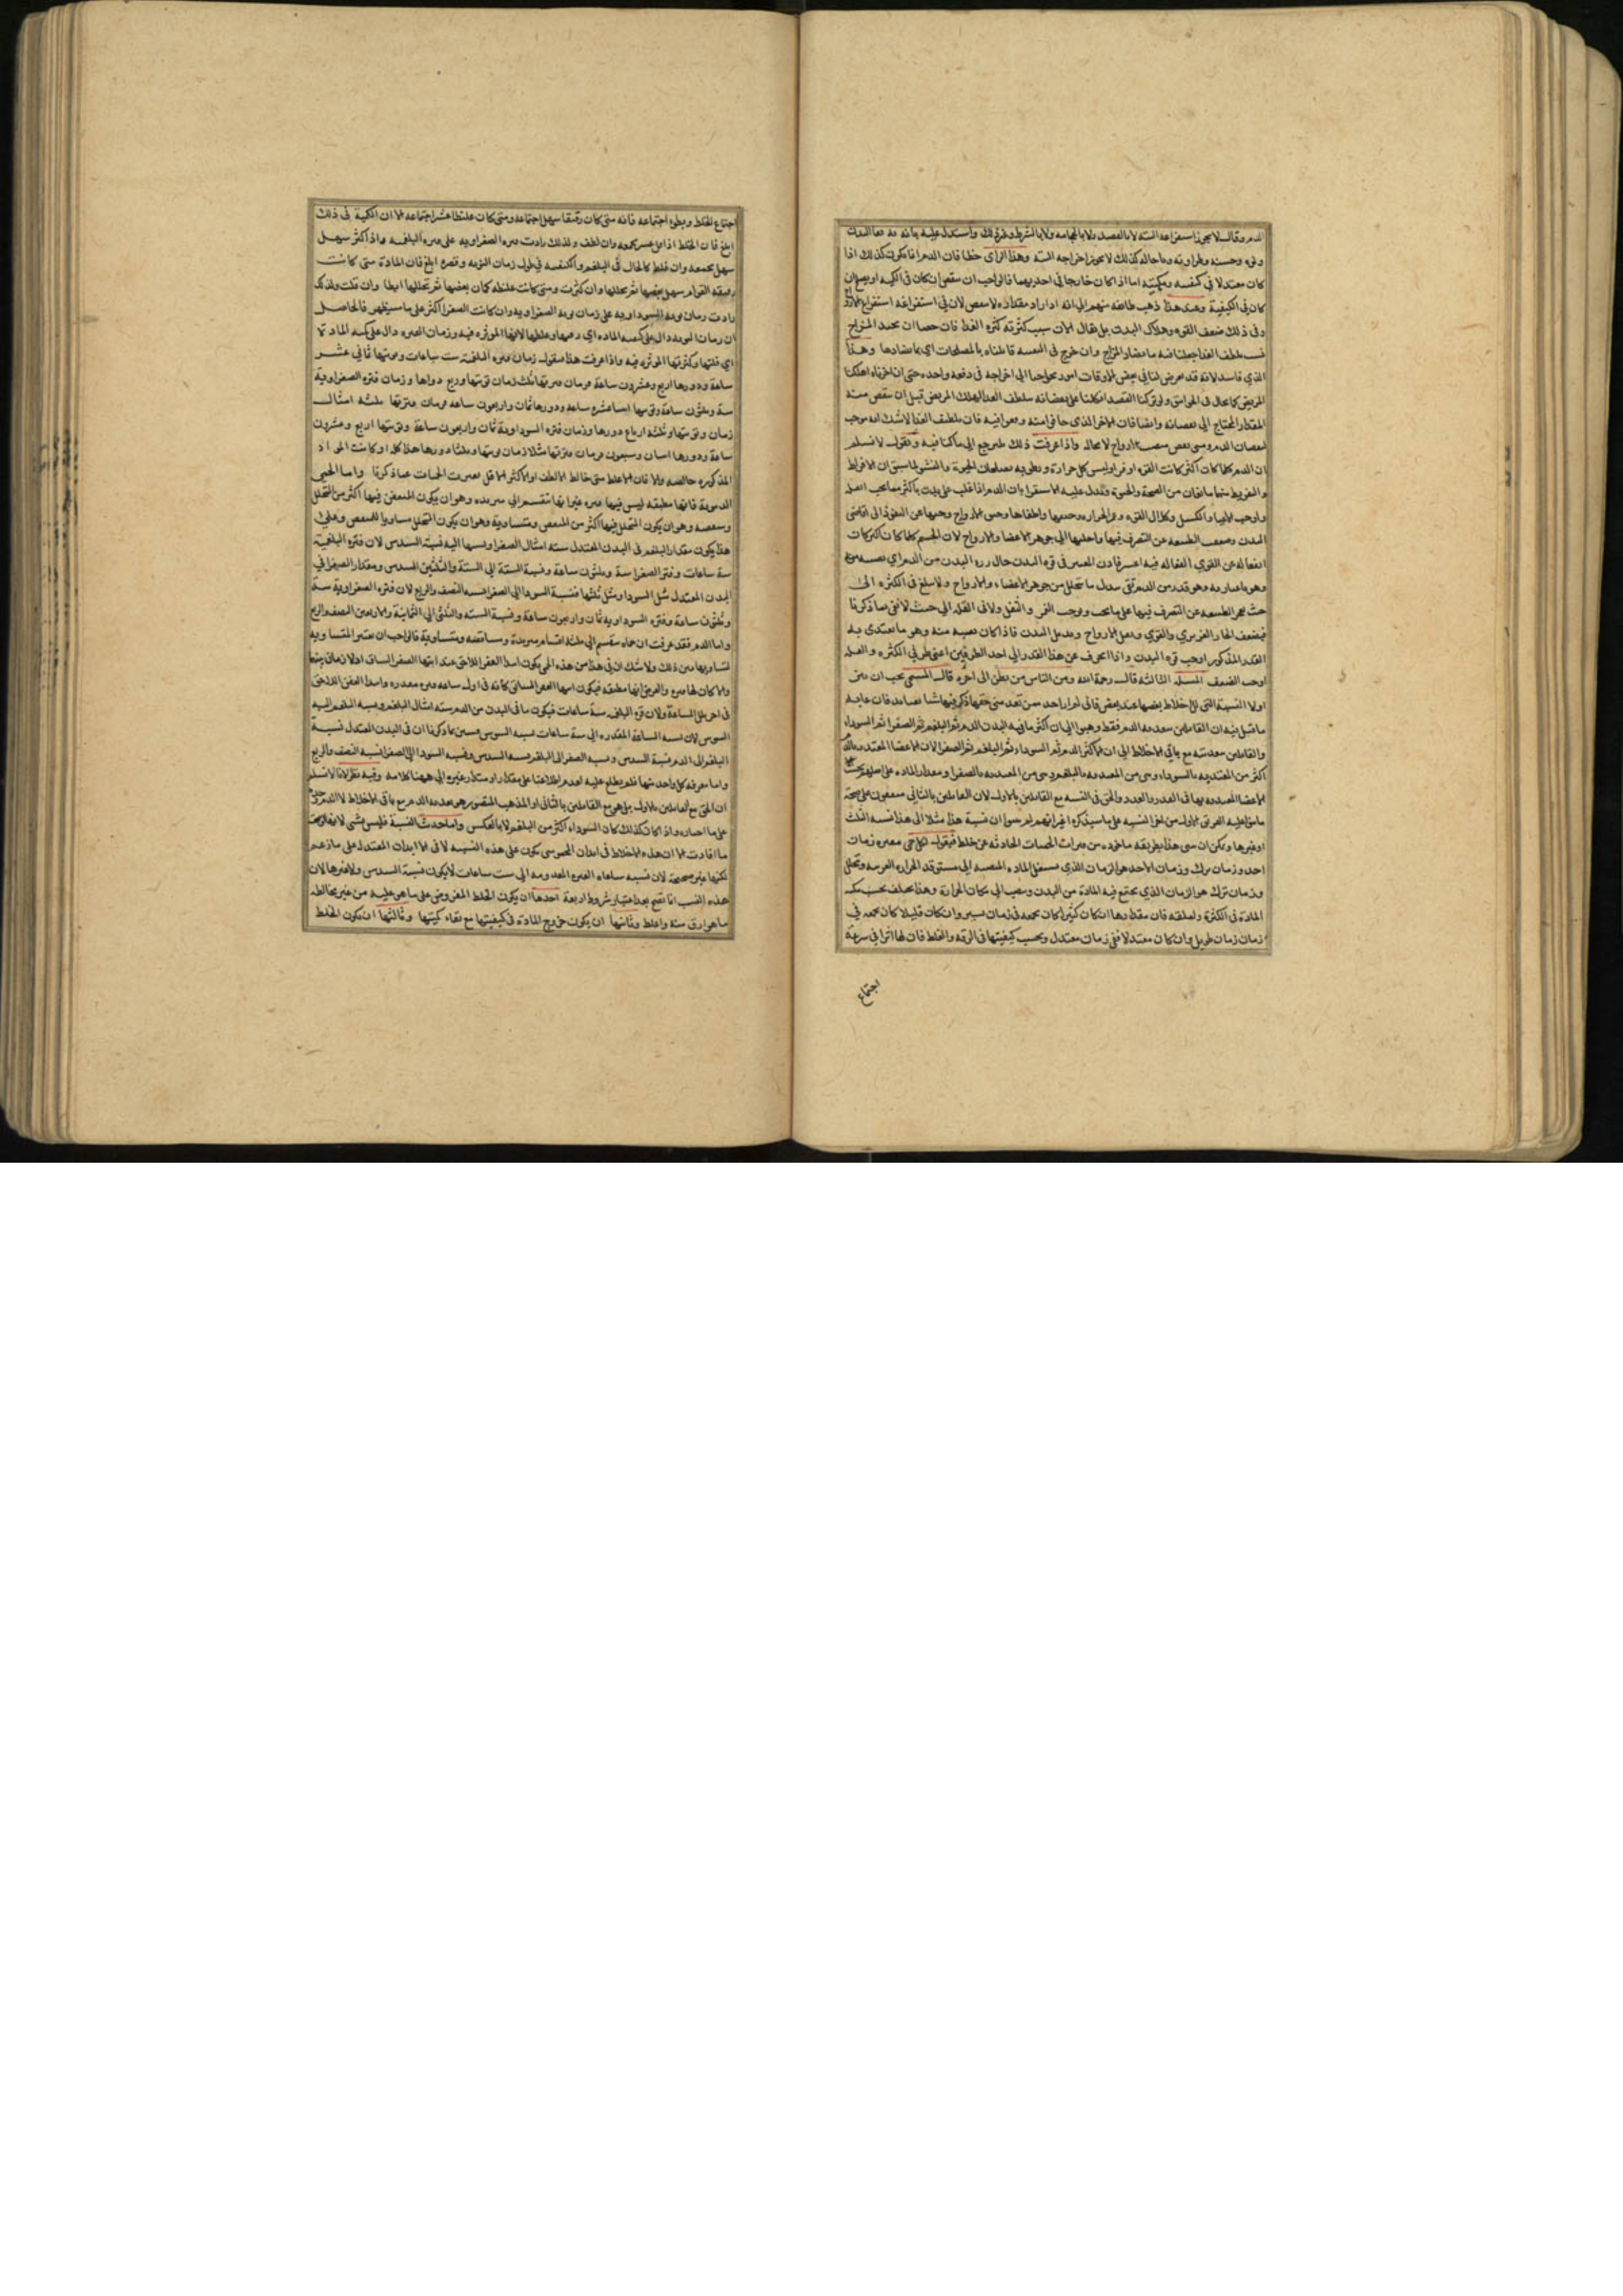 الدم وقال لا يجوز استفراغه البتة لا بالفصد ولا بالحجامة ولا بالشرط وغير ذلك واستدل عليه بانه به بقا البدن
وقوته وحسنه وطراوته وما حاله كذلك لا يجوز اخراجه البتة وهذا الراى خطا فان الدم انما يكون كذلك اذا
كان معتدلا في كيفيته وكميته اما اذا كان خارجا في احديهما فالواجب ان ينقص ان كان في الكمية او يصلح ان
كان في الكيفية وبعد هذا ذهب طائفة منهم الي انه اذا زاد مقداره لا ينقص لان في استفراغه استفراغ الارواح
وفى ذلك ضعف القوه وهلاك البدن بل يقال الان سبب كثرته كثره الغذا فان
الذي فاسد لانه قد يعرض لنا في بعض الاوقات امور يحوجنا الي اخراجه فى دفعة واحده حتى ان اخرناه اهلكنا
المريض كما يحال فى الخوانيق ولو تركنا الفصد واتكلنا على نقصانه بتلطيف الغدا لهلك المريض قبل ان ينقص منه
المقدار المحتاج الي نقصانه وايضا فان الامر الذى خافوا منه وقعوا فيه فان تلطيف الغذا لا شك انه يوجب
نقصان الدم ومتى نقص نقصت الارواح لا محالة واذا عرفت ذلك فلنرجع الي ما كنا فيه ونقول لا نسلم
ان الدم كلما كان اكثر كانت القوه اوفر اوليس كل حرارة ورطوبة يصلحان للحيوة والنشو لما سبق ان الافراط
والتفريط منهما مانعان من الصحة والحيوة ويدل عليه الاستقرا فان الدم اذا غلب على بدن باكثر مما يجب اثقله
واوجب الاعيا والكسل وكلال القوه
المدن وضعف الطبيعه عن التصرف فيها واحالتها الي جوهر الاعضا والارواح لان الجسم كلما كان اكثر كان
انفعاله عن القوي الفعاله فيه اعسر فاذن المعتبر فى قوه البدن حال رزه البدن من الدم اي نصيبه منه
وهو معياره وهو قدر من الدم يفى ببدل ما يتحلل من جوهر الاعضاء والارواح ولا يبلغ فى الكثره الى
حيث يعجز الطبيعه عن التصرف فيها على ما يجب ويوجب الغمر والثقل ولا فى القله الي حيث لا يفى بما ذكرنا
فيضعف الحار الغريزي والقوي ويقل الارواح ويذبل البدن فاذا كان نصيبه منه وهو ما يغتدى به
القدر المذكور اوجب قوه البدن واذا انحرف عن هذا القدر الي احد الطرفين اعنى طرفي الكثره والقله
اوجب الضعف المسئله الثالثه قال رحمة الله ومن الناس من يظن الى اخره قال المسيحى يجب ان نبين
اولا النسبة التى للاخلاط بعضها عند بعض فانى لم ار احد ممن تقدمنى حققها ذكر فيها شيا يعتد به فان غايه
ما قيل فيه ان القائلين بتغديه الدم فقط ذهبوا الي ان اكثر ما فيه البدن الدم ثم البلغم ثم الصفرا ثم السوداء
والقائلين بتغديته مع باقي الاخلاط الي ان الاكثر الدم ثم السوداء ثم البلغم ثم الصفرا لان الاعضا المغتديه بالدم
اكثر من المغتديه بالسوداء وهى من المغتديه بالبلغم وهى من المغتديه بالصفرا ومقدار الماده على
الاعضا المغتديه بها فى القدر والعدد والحق فى النسبه مع القائلين بالاول لان القائلين بالثاني متفقون على صحة
ما بنى عليه الفريق الاول من امر النسبه على ما سيذكره غير انهم لم يبينوا ان نسبة هذا مثلا الى هذا نسبة الثلث
او غيرها ويمكن ان نبين هذا بطريقة ماخوذه من فترات الحميات الحادثه عن خلط خلط فنقول لكل حمى مفتره زمان
اخذ وزمان ترك وزمان الاخذ هو الزمان الذي تستعل الماده المنصبه الى مستوقد الحراره الغريبه وتتحلل
وزمان ترك هو الزمان الذي يجتمع فيه الماده من البدن وينصب الى مكان الحرارة وهذا يختلف بحسب كمية
المادة فى الكثرة والقله فان مقدارها ان كان كثيرا كان تجمعه فى زمان يسير وان كان قليلا كان تجمعه في
زمان زمان طويل وان كان معتدلا ففى زمان معتدل وبحسب كيفيتها فى الرقه والغلظ فان لها اثرا في سرعة
اجتماع
اجتماع الخلط وبطوء اجتماعه فانه متى كان رقيقا سهل اجتماعه ومتى كان غليظا عسر اجتماعه الا ان الكمية فى ذلك
ابلغ فان الخلط اذا قل عسر تجمعه وان لطف ولذلك زادت فتره الصفراويه على فتره البلغميه واذا كثر سهل
سهل تجمعه وان غلظ كالحال فى البلغم والكيفيه في طول زمان النوبه وقصره ابلغ فان المادة متى كانت
رقيقه القوام سهل تعفنها ثم تحللها وان كثرت ومتى كانت غليظه كان تعفنها ثم تحللها ابطا وان قلت ولذلك
زادت زمان نوبه السوداويه على زمان نوبه الصفراويه وان كانت الصفرا اكثر على ما سيظهر فالحاصل
ان زمان النوبه دال على كيفيه الماده اي رقتها وغلظها لانها الموثره فيه وزمان الفتره دال على كميه المادة
اي قلتها وكثرتها الموثره فيه واذا عرفت هذا فنقول زمان فتره البلغميه ست ساعات ونوبتها ثماني عشر
ساعة ودورها اربع وعشرون ساعة فزمان فترتها ثلث زمان نوبتها وربع دورها وزمان فتره الصفراوية
ستة وثلثون ساعة ونوبتها اثنا عشره ساعه ودورها ثمان واربعون ساعه فزمان فترتها ثلثه امثال
زمان نوبتها وثلثه ارباع دورها وزمان فتره السوداوية ثمان واربعون ساعة ونوبتها اربع وعشرون
ساعة ودورها اثنان وسبعون فزمان فترتها مثلا زمان نوبتها وثلثا دورها هذا كله اذا كانت المواد
المذكوره خالصه والا فان الاغلظ متى خالط الالطف او الاكثر الاقل تغيرت الحميات عما ذكرنا واما الحمى
الدموية فانها مطبقه ليس فيها فتره غير انها تنقسم الي متزيده وهو ان يكون المتعفن فيها اكثر من المتحلل
ومتنقصه وهو ان يكون المتحلل فيها اكثر من المتعفن ومتساوية وهو ان يكون المتحلل مساويا للمتعفن وعلى
هذا يكون مقدار البلغم فى البدن المعتدل ستة امثال الصفرا ونسبتها اليه نسبة السدس لان فتره البلغمية
ستة ساعات وفتر الصفرا ستة وثلثون ساعة ونسبة الستة الي الستة والثلثين السدس ومقدار الصفرا في
البدن المعتدل مثل السودا ومثل ثلثها فنسبة السودا الي الصفرا نسبة النصف والربع لان فتره الصفراوية ستة
وثلثون ساعة وفتره السوداويه ثمان واربعون ساعة ونسبة الستة والثلثين الي الثمانية والاربعين النصف والربع
واما الدم فقد عرفت ان حماه تنقسم الي ثلثه اقسام متزيدة ومتناقصه ومتساوية فالواجب ان نعتبر المتساويه
فى اخر تلك الساعة ولان فتره البلغميه ستة ساعات فيكون ما فى البدن من الدم ستة امثال البلغم ونسبه البلغم اليه
السدس لان نسبه الساعة المقدره الى ستة ساعات نسبه السدس فتبين بما ذكرنا ان فى البدن المعتدل نسبة
البلغم الى الدم نسبة السدس ونسبه الصفرا الى البلغم نسبه السدس ونسبه السودا الي الصفرا نسبه النصف والربع
واما معرفه كل واحد منها فلم نطلع عليه لعدم اطلاعنا على مقدار او مثال وغيره الى ههنا كلامه وفيه نظر لانا لا نسلم
ان الحق مع القائلين بالاول بل هو مع القائلين بالثانى اذ المذهب المنصور هو تغديه الدم مع باقى الاخلاط لا الدم
على ما اختاره واذا كان كذلك كان السوداء اكثر من البلغم لا بالعكس واما حديث النسبة فليس بشى
ما افادت الا ان هذه الاخلاط فى ابدان المحمومين يكون على هذه النسبه لا فى الابدان المعتدل على ما زعم
لكنها غير صحيحة لان نسبه ساعات الفتره المعدومه الى ست ساعات لا يكون نسبة السدس ولا غيرها لان
هذه النسب انما تصح بعد اعتبار شروط اربعة احدها ان يكون الخلط المفروض على ما هو عليه من غير مخالطه
ما هو ارق منه واغلظ وثانيها ان يكون خروج المادة فى كيفيتها مع بقاء كميتها وثالثها ان يكون الخلط